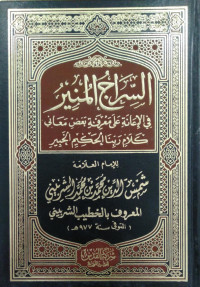 السراج المنير
في الإعانة على معرفة بعض معاني
كلام ربنا الحكيم الخبير
للإمام العلامة
شمس الدين محمد بن محمد الشربيني
المعروف بالخطيب الشربيني
(المتوفى سنة ٩٧٧هـ)